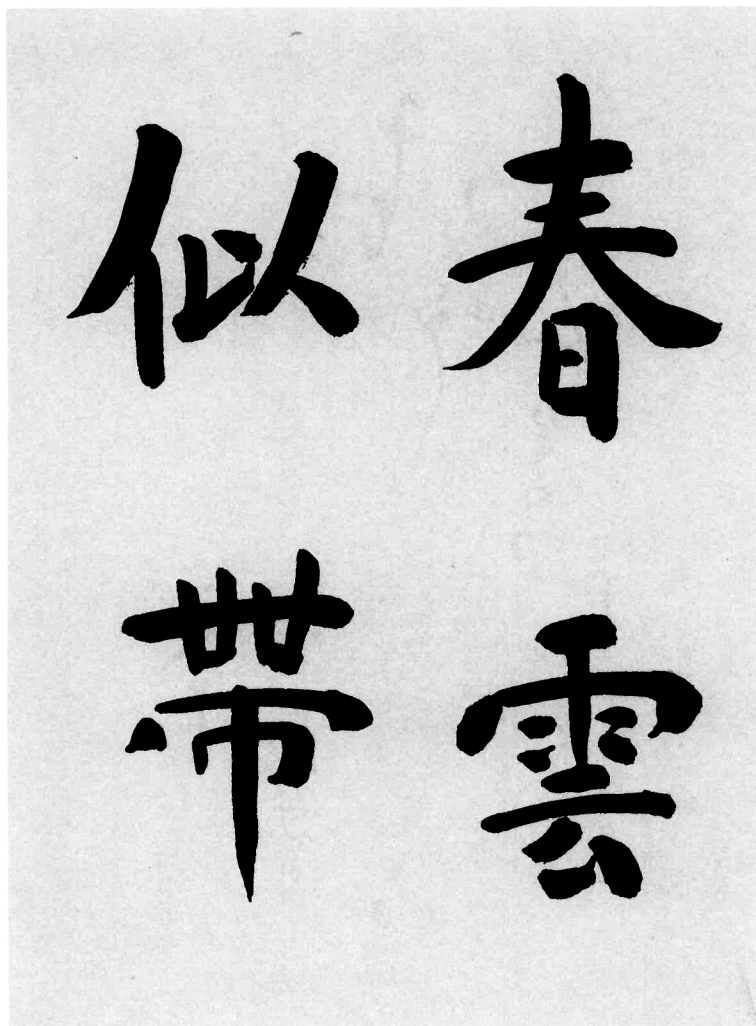 春雲
似帶